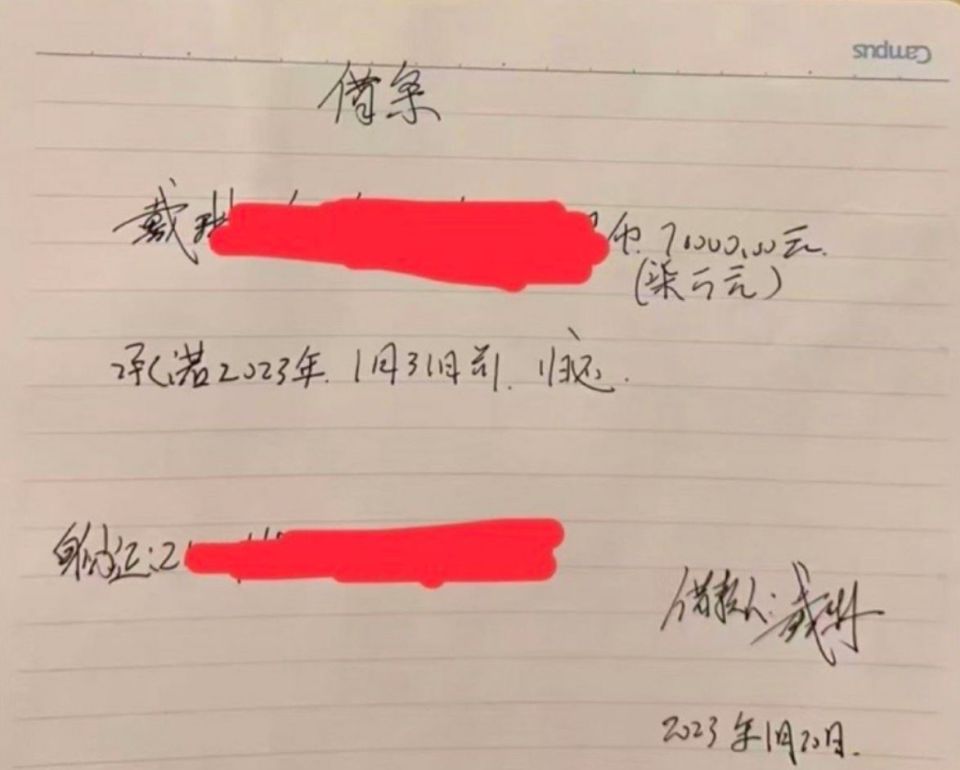 Campus
借条
戴琳 币 7000.00元.
(柒仟元)
承诺2023年1月31日前归还.
身份证:2
借款人:戴琳
2023年1月20日.